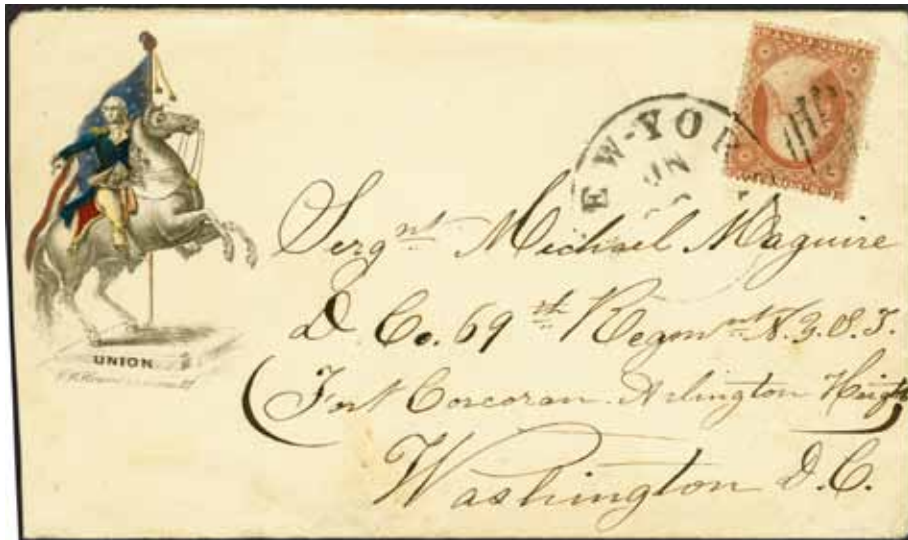 EW-YOR
UN
UNION
Sergnt Michael Maguire
D Co. 69th Regmnt N.Y.S.T.
(Fort Corcoran Arlington Heights)
Washington D.C.